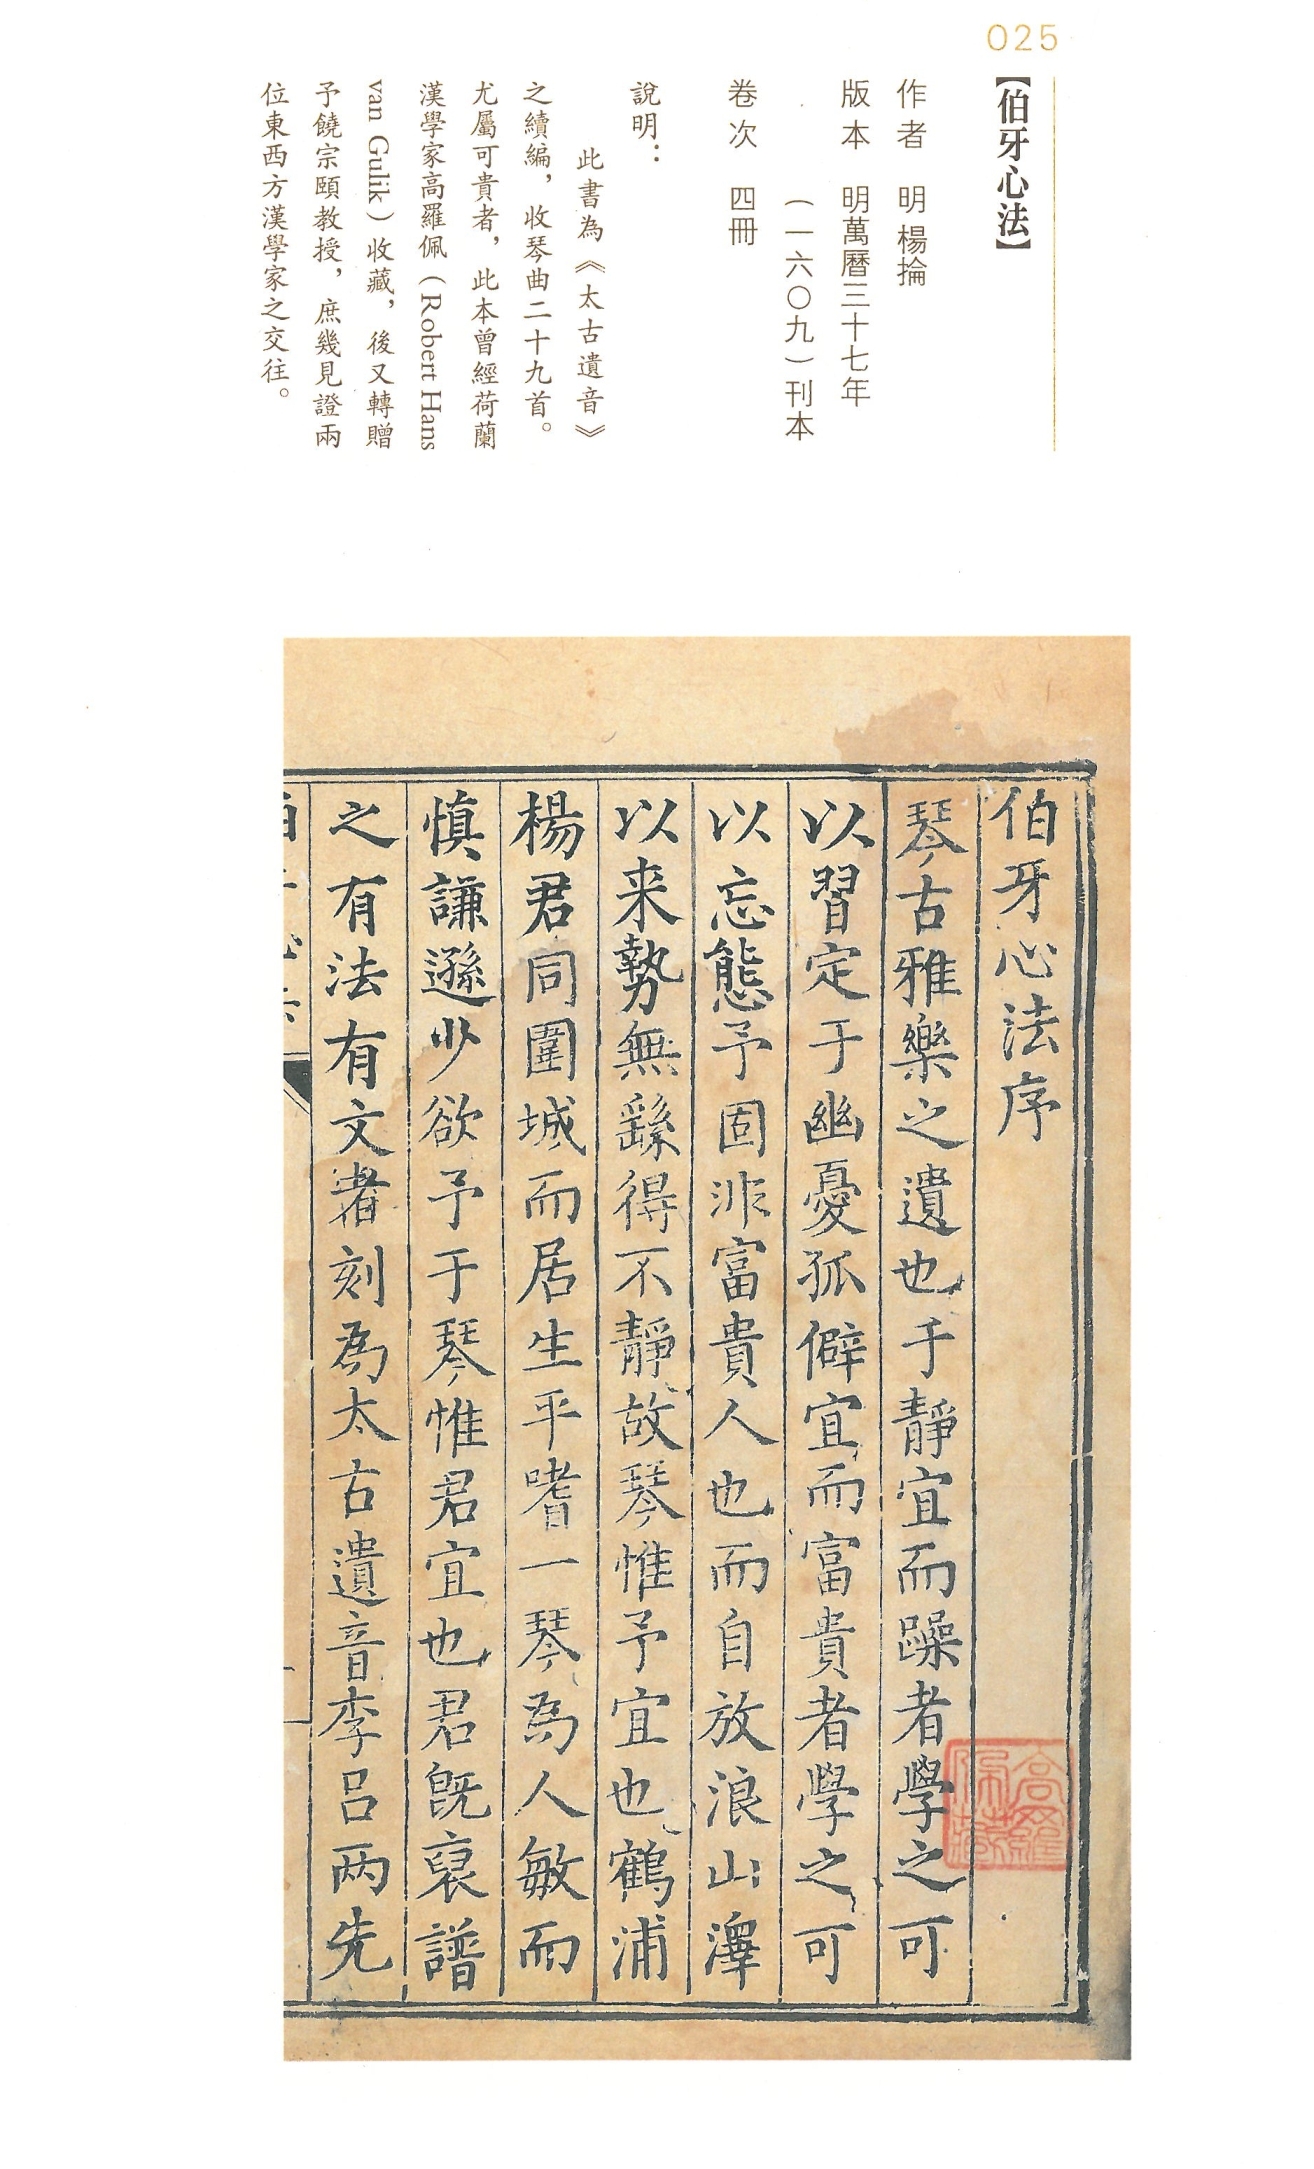 025
【伯牙心法】
作者　明 楊掄
版本　明萬曆三十七年
（一六〇九）刊本
卷次　四冊
說明：
此書為《太古遺音》
之續編，收琴曲二十九首。
尤屬可貴者，此本曾經荷蘭
漢學家高羅佩（Robert Hans
van Gulik）收藏，後又轉贈
予饒宗頤教授，庶幾見證兩
位東西方漢學家之交往。
伯牙心法序
琴古雅樂之遺也于靜宜而躁者學之可
以習定于幽憂孤僻宜而富貴者學之可
以忘態予固非富貴人也而自放浪山澤
以来勢無繇得不靜故琴惟予宜也鶴浦
楊君同圍城而居生平嗜一琴為人敏而
慎謙遜少欲予于琴惟君宜也君既裒譜
之有法有文者刻為太古遺音李呂两先
高羅佩藏